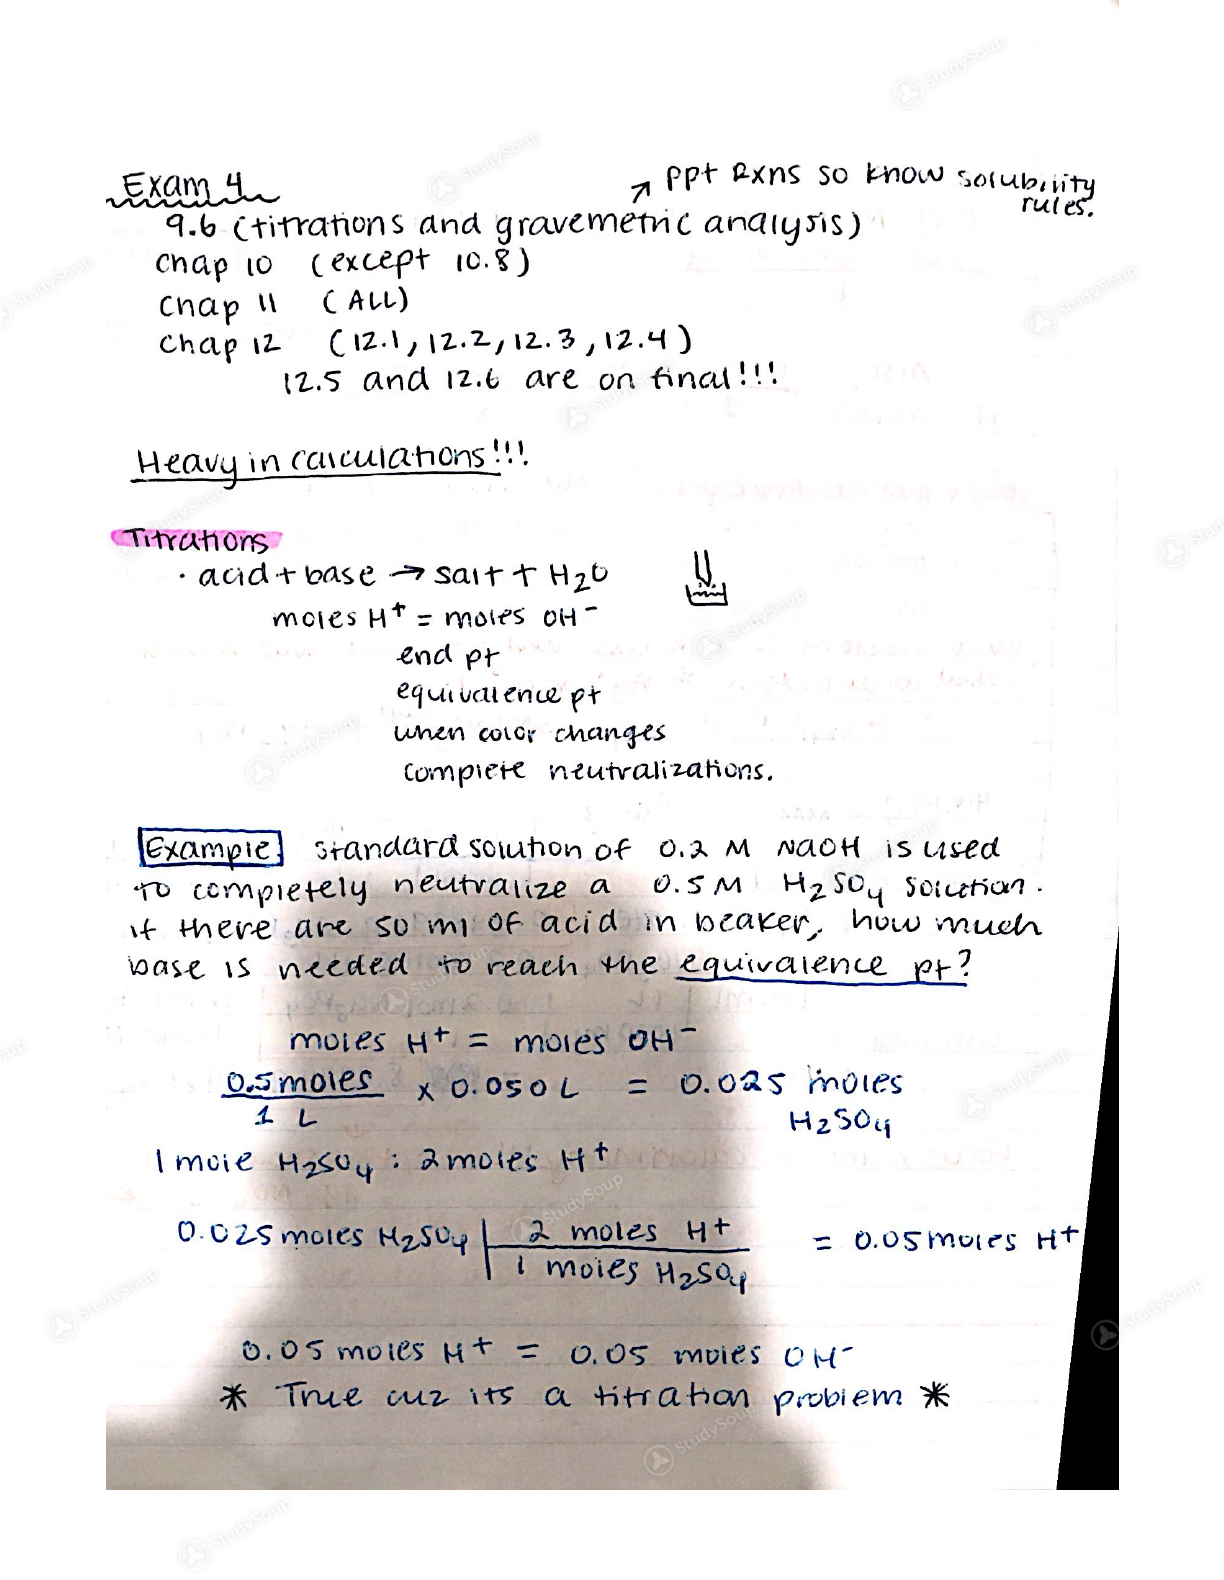 Exam 4
↗ ppt Rxns so know solubility rules.
9.6 (titrations and gravemetric analysis)
Chap 10 (except 10.8)
Chap 11 (ALL)
Chap 12 (12.1, 12.2, 12.3, 12.4)
12.5 and 12.6 are on final!!!
Heavy in calculations!!!
Titrations
· acid + base → salt + H₂O
moles H⁺ = moles OH⁻
end pt
equivalence pt
when color changes
complete neutralizations.
Example standard solution of 0.2 M NaOH is used
to completely neutralize a 0.5 M H₂SO₄ solution.
if there are 50 ml of acid in beaker, how much
base is needed to reach the equivalence pt?
moles H⁺ = moles OH⁻
0.5 moles / 1 L x 0.050 L = 0.025 moles H₂SO₄
1 mole H₂SO₄ : 2 moles H⁺
0.025 moles H₂SO₄ | 2 moles H⁺ / 1 moles H₂SO₄ = 0.05 moles H⁺
0.05 moles H⁺ = 0.05 moles OH⁻
* True cuz its a titration problem *
StudySoup